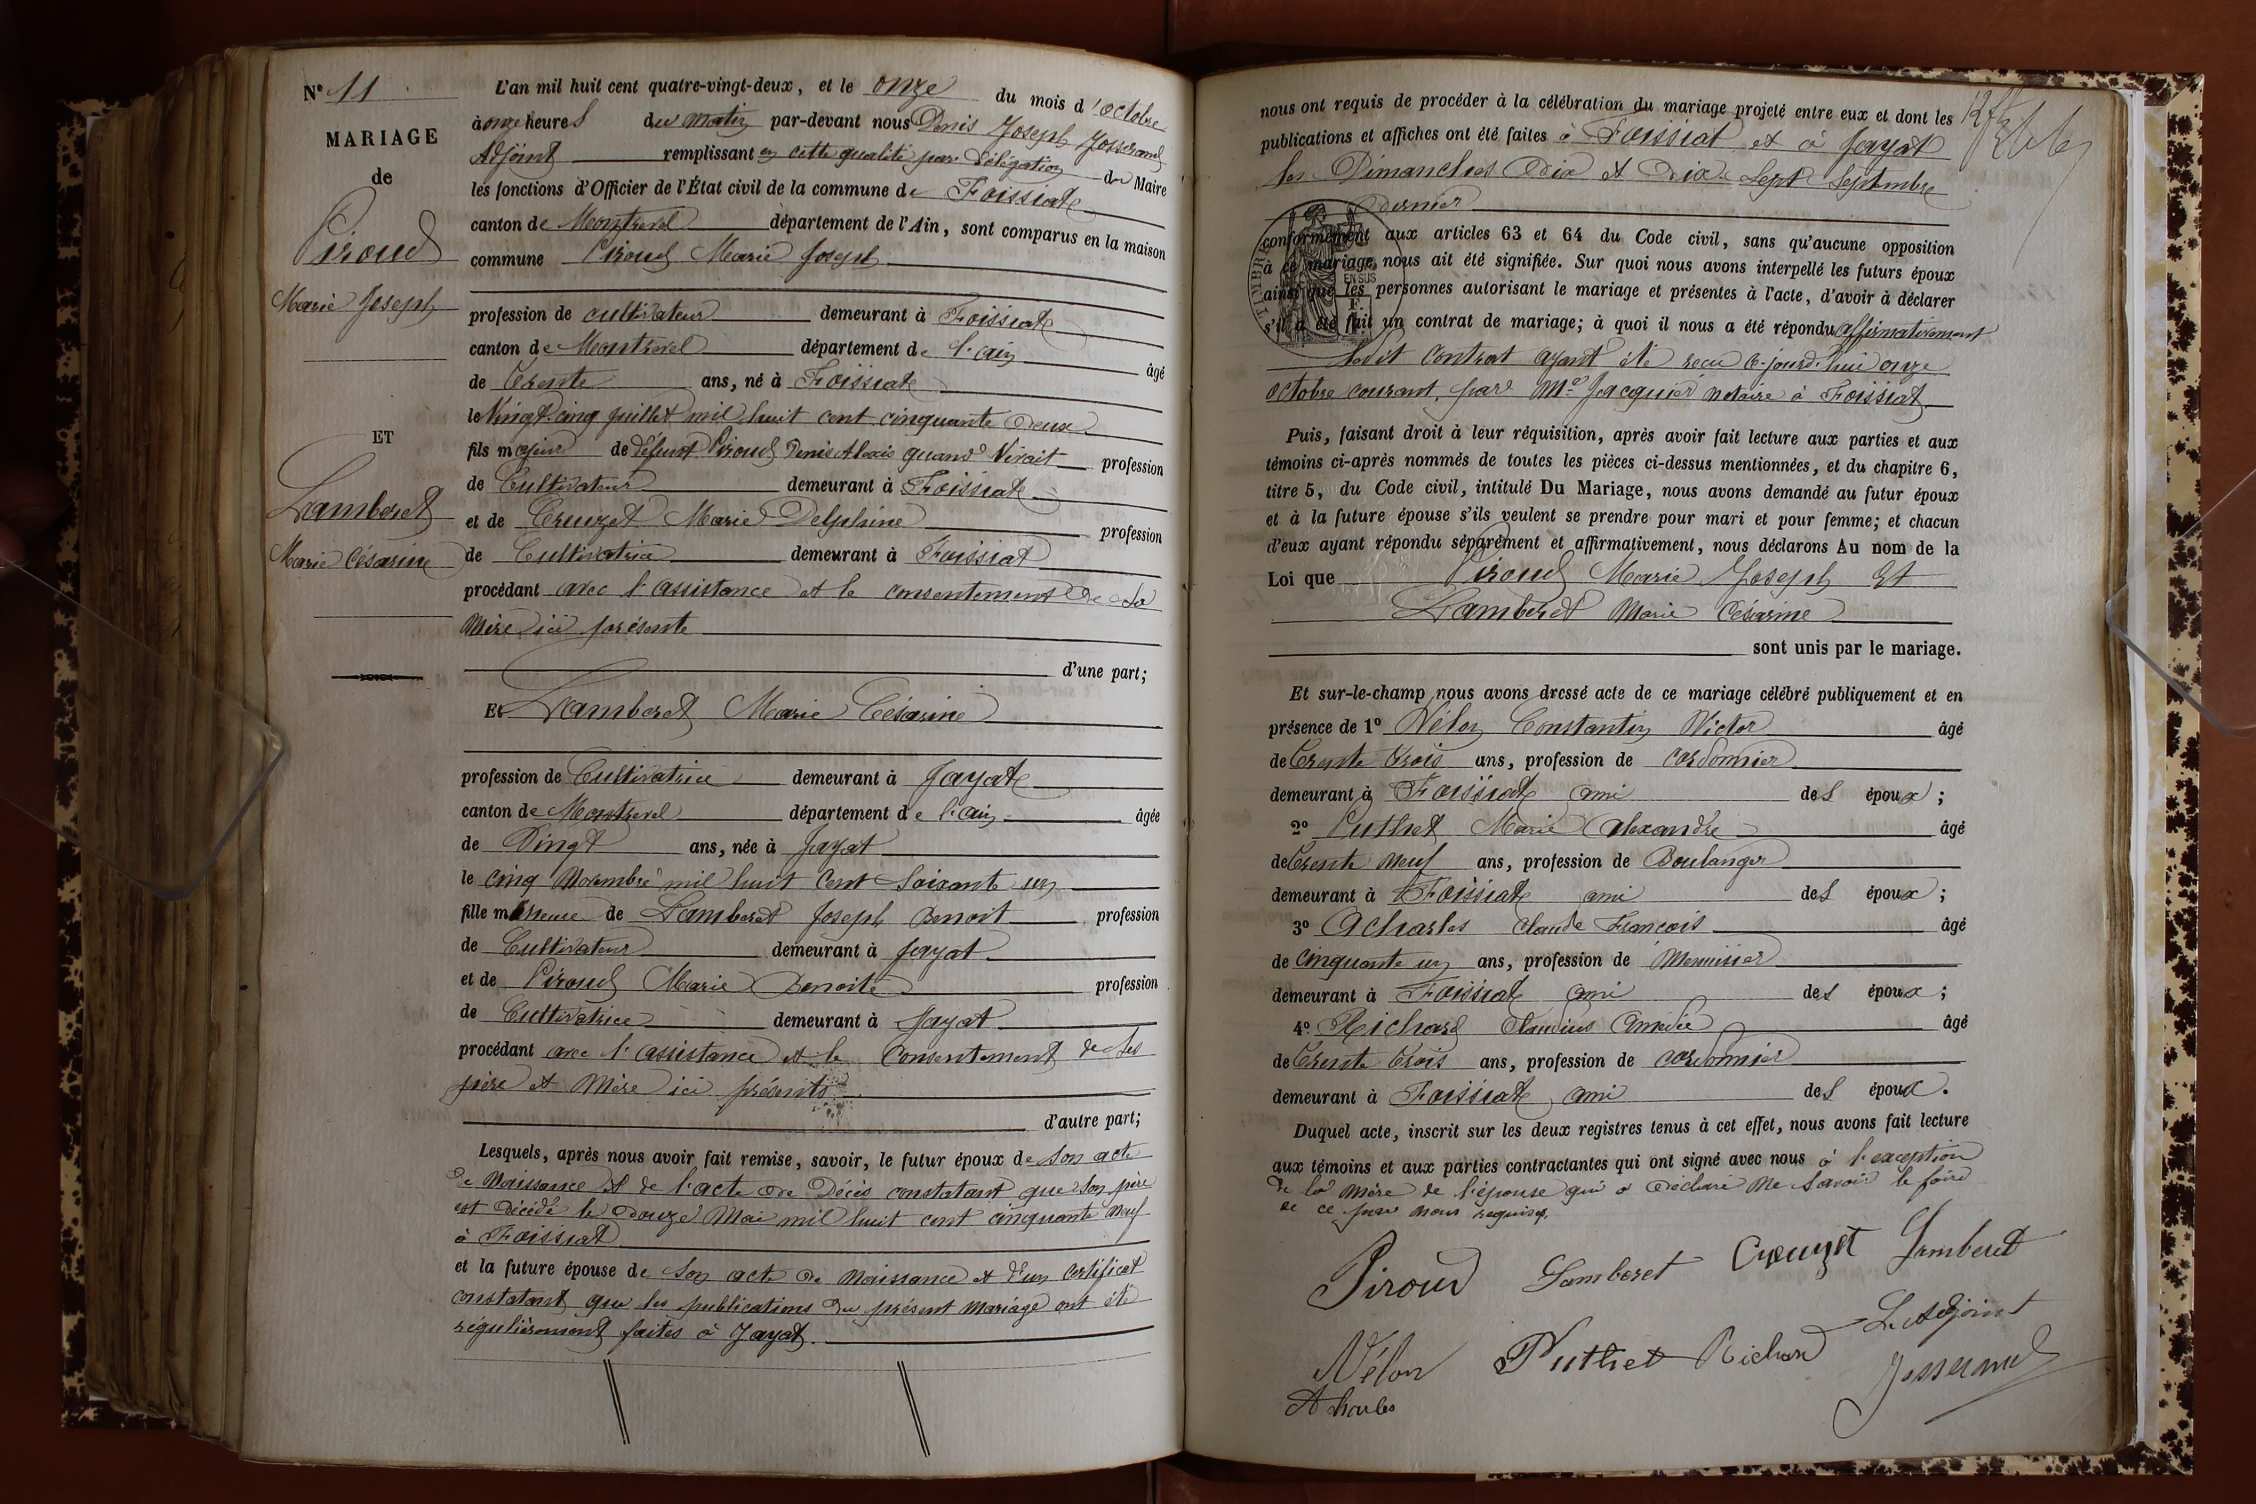 N° 11
MARIAGE
de
Piroud
Marie Joseph
ET
Lamberet
Marie Césarine
L'an mil huit cent quatre-vingt-deux, et le onze du mois d'octobre
à onze heures du matin par-devant nous Denis Joseph Josserand
Adjoint remplissant en cette qualité par délégation du Maire
les fonctions d'Officier de l'État civil de la commune de Foissiat
canton de Montrevel département de l'Ain, sont comparus en la maison
commune Piroud Marie Joseph
profession de cultivateur demeurant à Foissiat
canton de Montrevel département de l'ain âgé
de Trente ans, né à Foissiat
le Vingt cinq juillet mil huit cent cinquante Deux
fils majeur de défunt Piroud Denis Alexis quand vivait profession
de Cultivateur demeurant à Foissiat
et de Creuzet Marie Delphine profession
de Cultivatrice demeurant à Foissiat
procédant avec l'assistance et le consentement de sa
Mère ici présente
d'une part;
Et Lamberet Marie Césarine
profession de Cultivatrice demeurant à Jayat
canton de Montrevel département de l'ain âgée
de Vingt ans, née à Jayat
le cinq Novembre mil huit cent soixante un
fille mineure de Lamberet Joseph Benoit profession
de Cultivateur demeurant à Jayat
et de Piroud Marie Benoite profession
de Cultivatrice demeurant à Jayat
procédant avec l'assistance et le consentement de ses
père et Mère ici présents
d'autre part;
Lesquels, après nous avoir fait remise, savoir, le futur époux de son acte
de Naissance et de l'acte de Décès constatant que son père
est décédé le douze Mai mil huit cent cinquante neuf
à Foissiat
et la future épouse de son acte de naissance et d'un certificat
constatant que les publications du présent mariage ont été
régulièrement faites à Jayat.
nous ont requis de procéder à la célébration du mariage projeté entre eux et dont les
publications et affiches ont été faites à Foissiat et à Jayat
les Dimanches Dix et Dix Sept Septembre
dernier
conformément aux articles 63 et 64 du Code civil, sans qu'aucune opposition
à ce mariage nous ait été signifiée. Sur quoi nous avons interpellé les futurs époux
ainsi que les personnes autorisant le mariage et présentes à l'acte, d'avoir à déclarer
s'il a été fait un contrat de mariage; à quoi il nous a été répondu affirmativement
ledit contrat ayant été reçu ce-jourd'hui onze
octobre courant, par Me Jacquier notaire à Foissiat
Puis, faisant droit à leur réquisition, après avoir fait lecture aux parties et aux
témoins ci-après nommés de toutes les pièces ci-dessus mentionnées, et du chapitre 6,
titre 5, du Code civil, intitulé Du Mariage, nous avons demandé au futur époux
et à la future épouse s'ils veulent se prendre pour mari et pour femme; et chacun
d'eux ayant répondu séparément et affirmativement, nous déclarons Au nom de la
Loi que Piroud Marie Joseph Et
Lamberet Marie Césarine
sont unis par le mariage.
Et sur-le-champ nous avons dressé acte de ce mariage célébré publiquement et en
présence de 1° Vélon Constantin Victor âgé
de Trente trois ans, profession de cordonnier
demeurant à Foissiat ami des époux;
2° Puthet Marie Alexandre âgé
de Trente Neuf ans, profession de Boulanger
demeurant à Foissiat ami des époux;
3° Acharles Claude François âgé
de cinquante un ans, profession de Menuisier
demeurant à Foissiat ami des époux;
4° Richard Claudius Amédée âgé
de Trente trois ans, profession de cordonnier
demeurant à Foissiat ami des époux.
Duquel acte, inscrit sur les deux registres tenus à cet effet, nous avons fait lecture
aux témoins et aux parties contractantes qui ont signé avec nous à l'exception
de la mère de l'épouse qui a déclaré ne savoir le faire
de ce par nous requise.
Piroud Lamberet Creuzet Lamberet
Vélon Puthet Richard L'adjoint
Acharles Josserand
TIMBRE
EN SUS